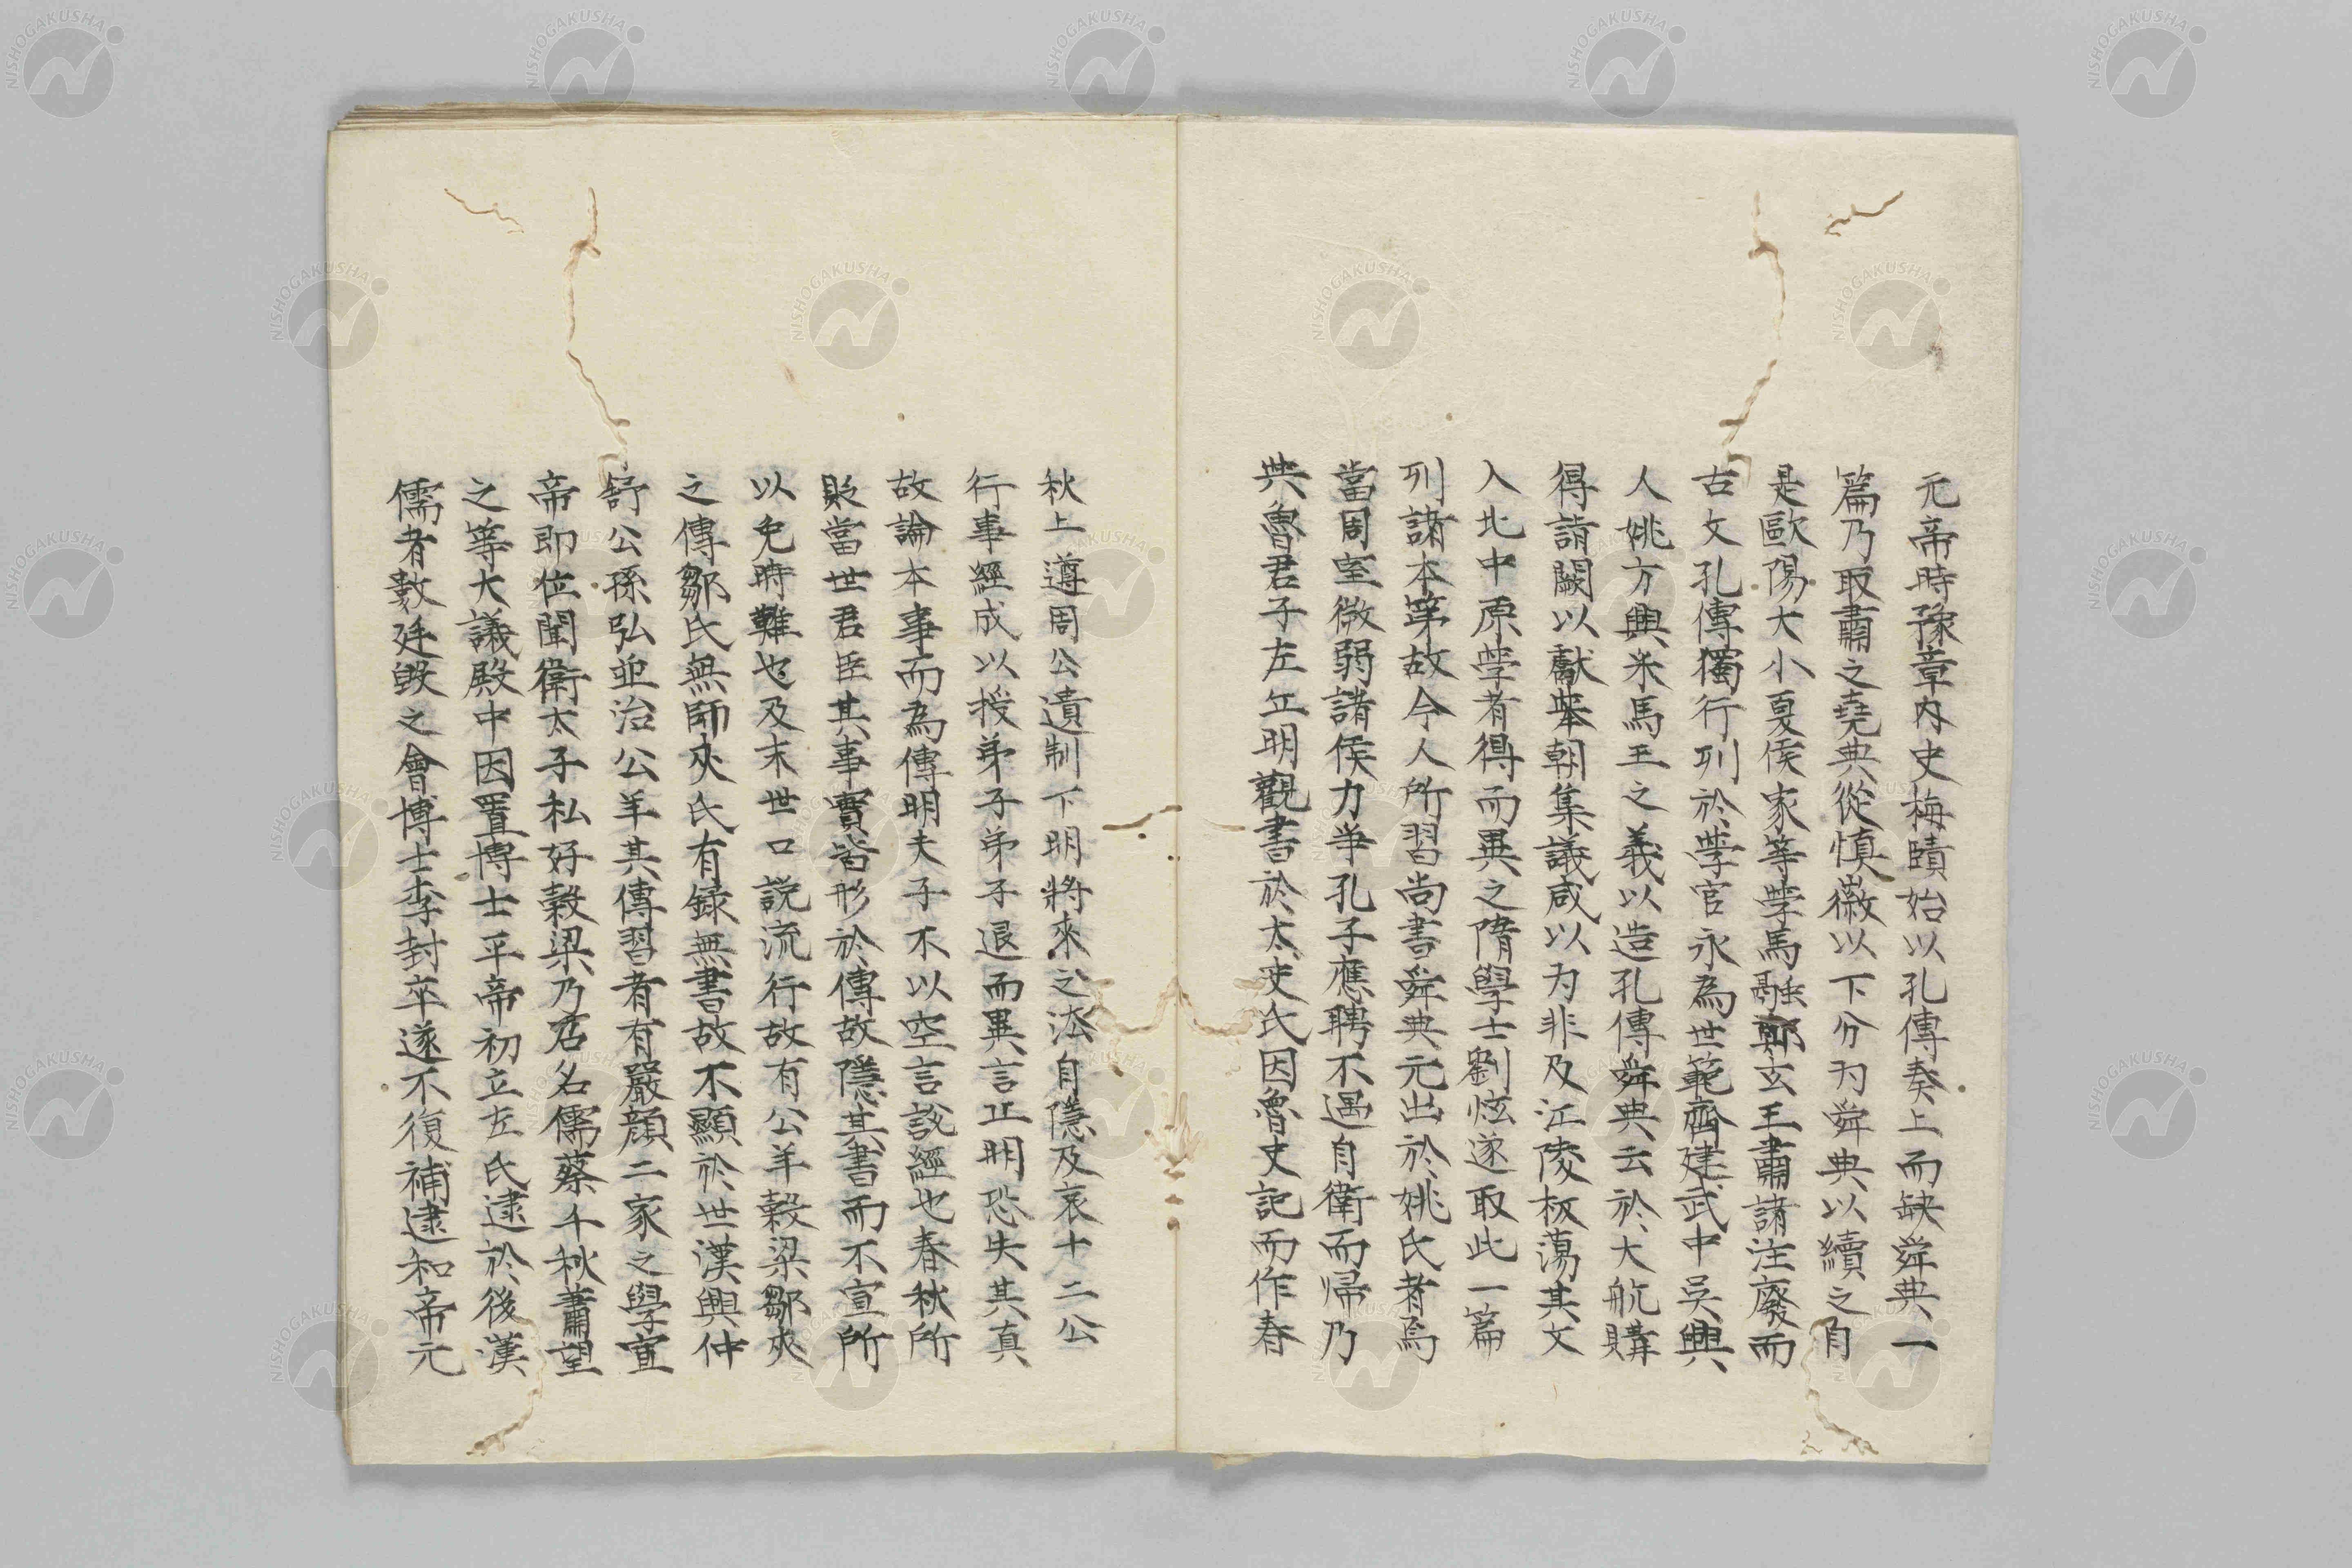 元帝時豫章内史梅賾始以孔傳奏上而缺舜典一
篇乃取肅之堯典從慎徽以下分为舜典以續之自
是歐陽大小夏侯家等學馬融鄭玄王肅諸注廢而
古文孔傳獨行列於學官永為世範齊建武中吳興
人姚方興采馬王之義以造孔傳舜典云於大航購
得詣闕以獻舉朝集議咸以为非及江陵板蕩其文
入北中原學者得而異之隋學士劉炫遂取此一篇
列諸本第故今人所習尚書舜典元出於姚氏者焉
當周室微弱諸侯力爭孔子應聘不遇自衛而帰乃
與魯君子左丘明觀書於太史氏因魯史記而作春
秋上遵周公遺制下明將來之法自隱及哀十二公
行事經成以授弟子弟子退而異言丘明恐失其真
故論本事而為傳明夫子不以空言說經也春秋所
貶當世君臣其事實皆形於傳故隱其書而不宣所
以免時難也及末世口說流行故有公羊穀梁鄒夾
之傳鄒氏無師夾氏有録無書故不顯於世漢興仲
舒公孫弘並治公羊其傳習者有嚴顏二家之學宣
帝即位聞衛太子私好穀梁乃召名儒蔡千秋蕭望
之等大議殿中因置博士平帝初立左氏逮於後漢
儒者數廷毀之會博士李封卒遂不復補逮和帝元
NISHOGAKUSHA